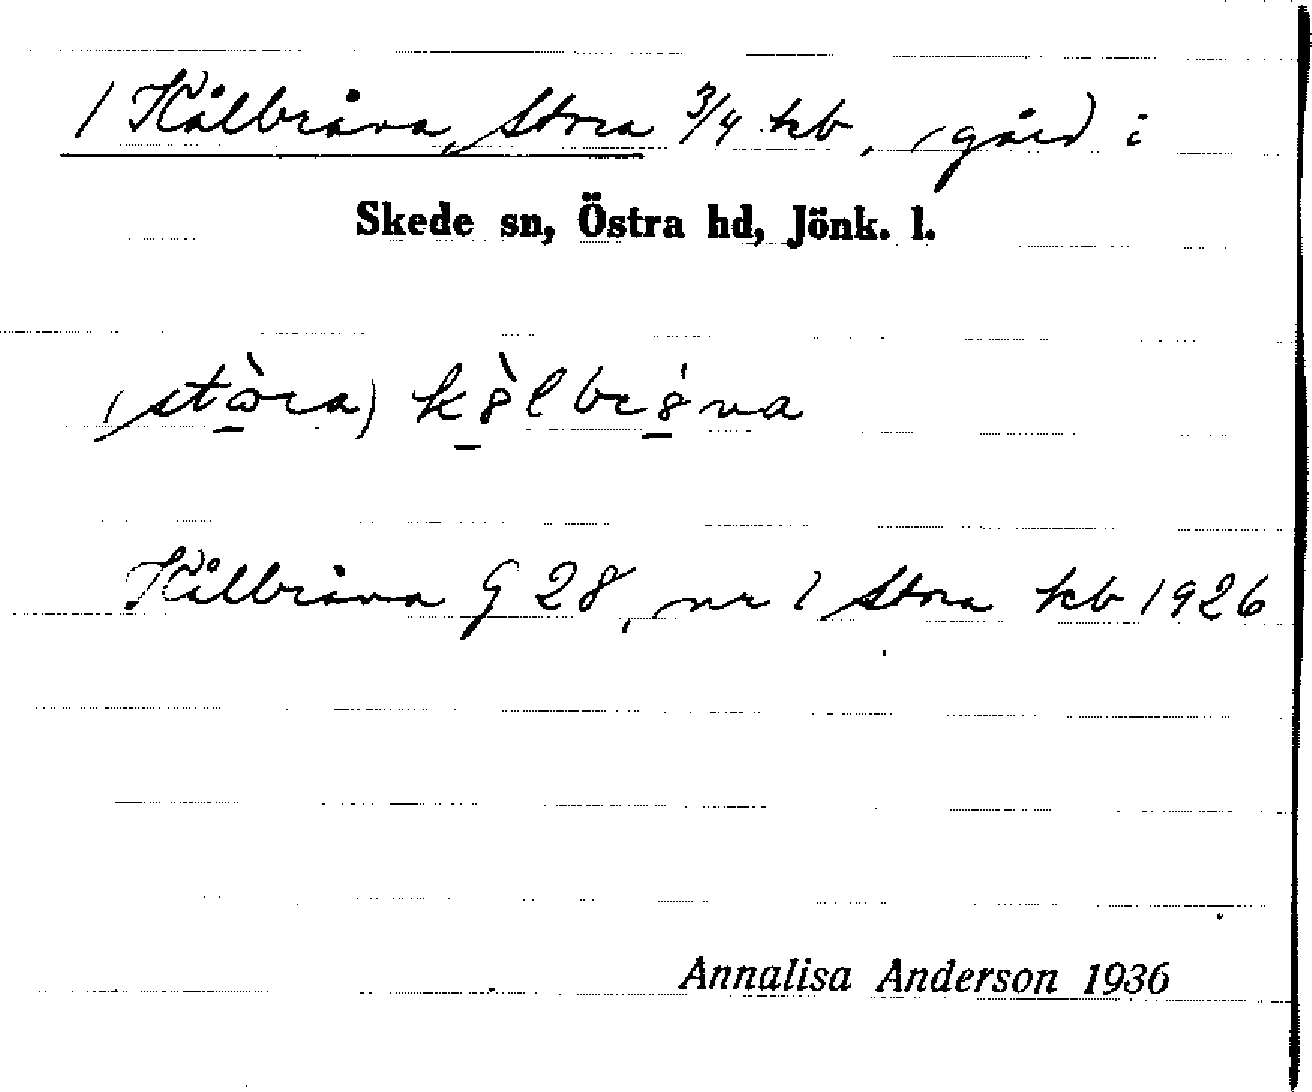 1 Kålbråna, Stora 3/4 kb, gård i
Skede sn, Östra hd, Jönk. l.
(stò̱ra) kö̀lbrána
Kålbråna G 28, nr 1 Stora kb 1926
Annalisa Anderson 1936